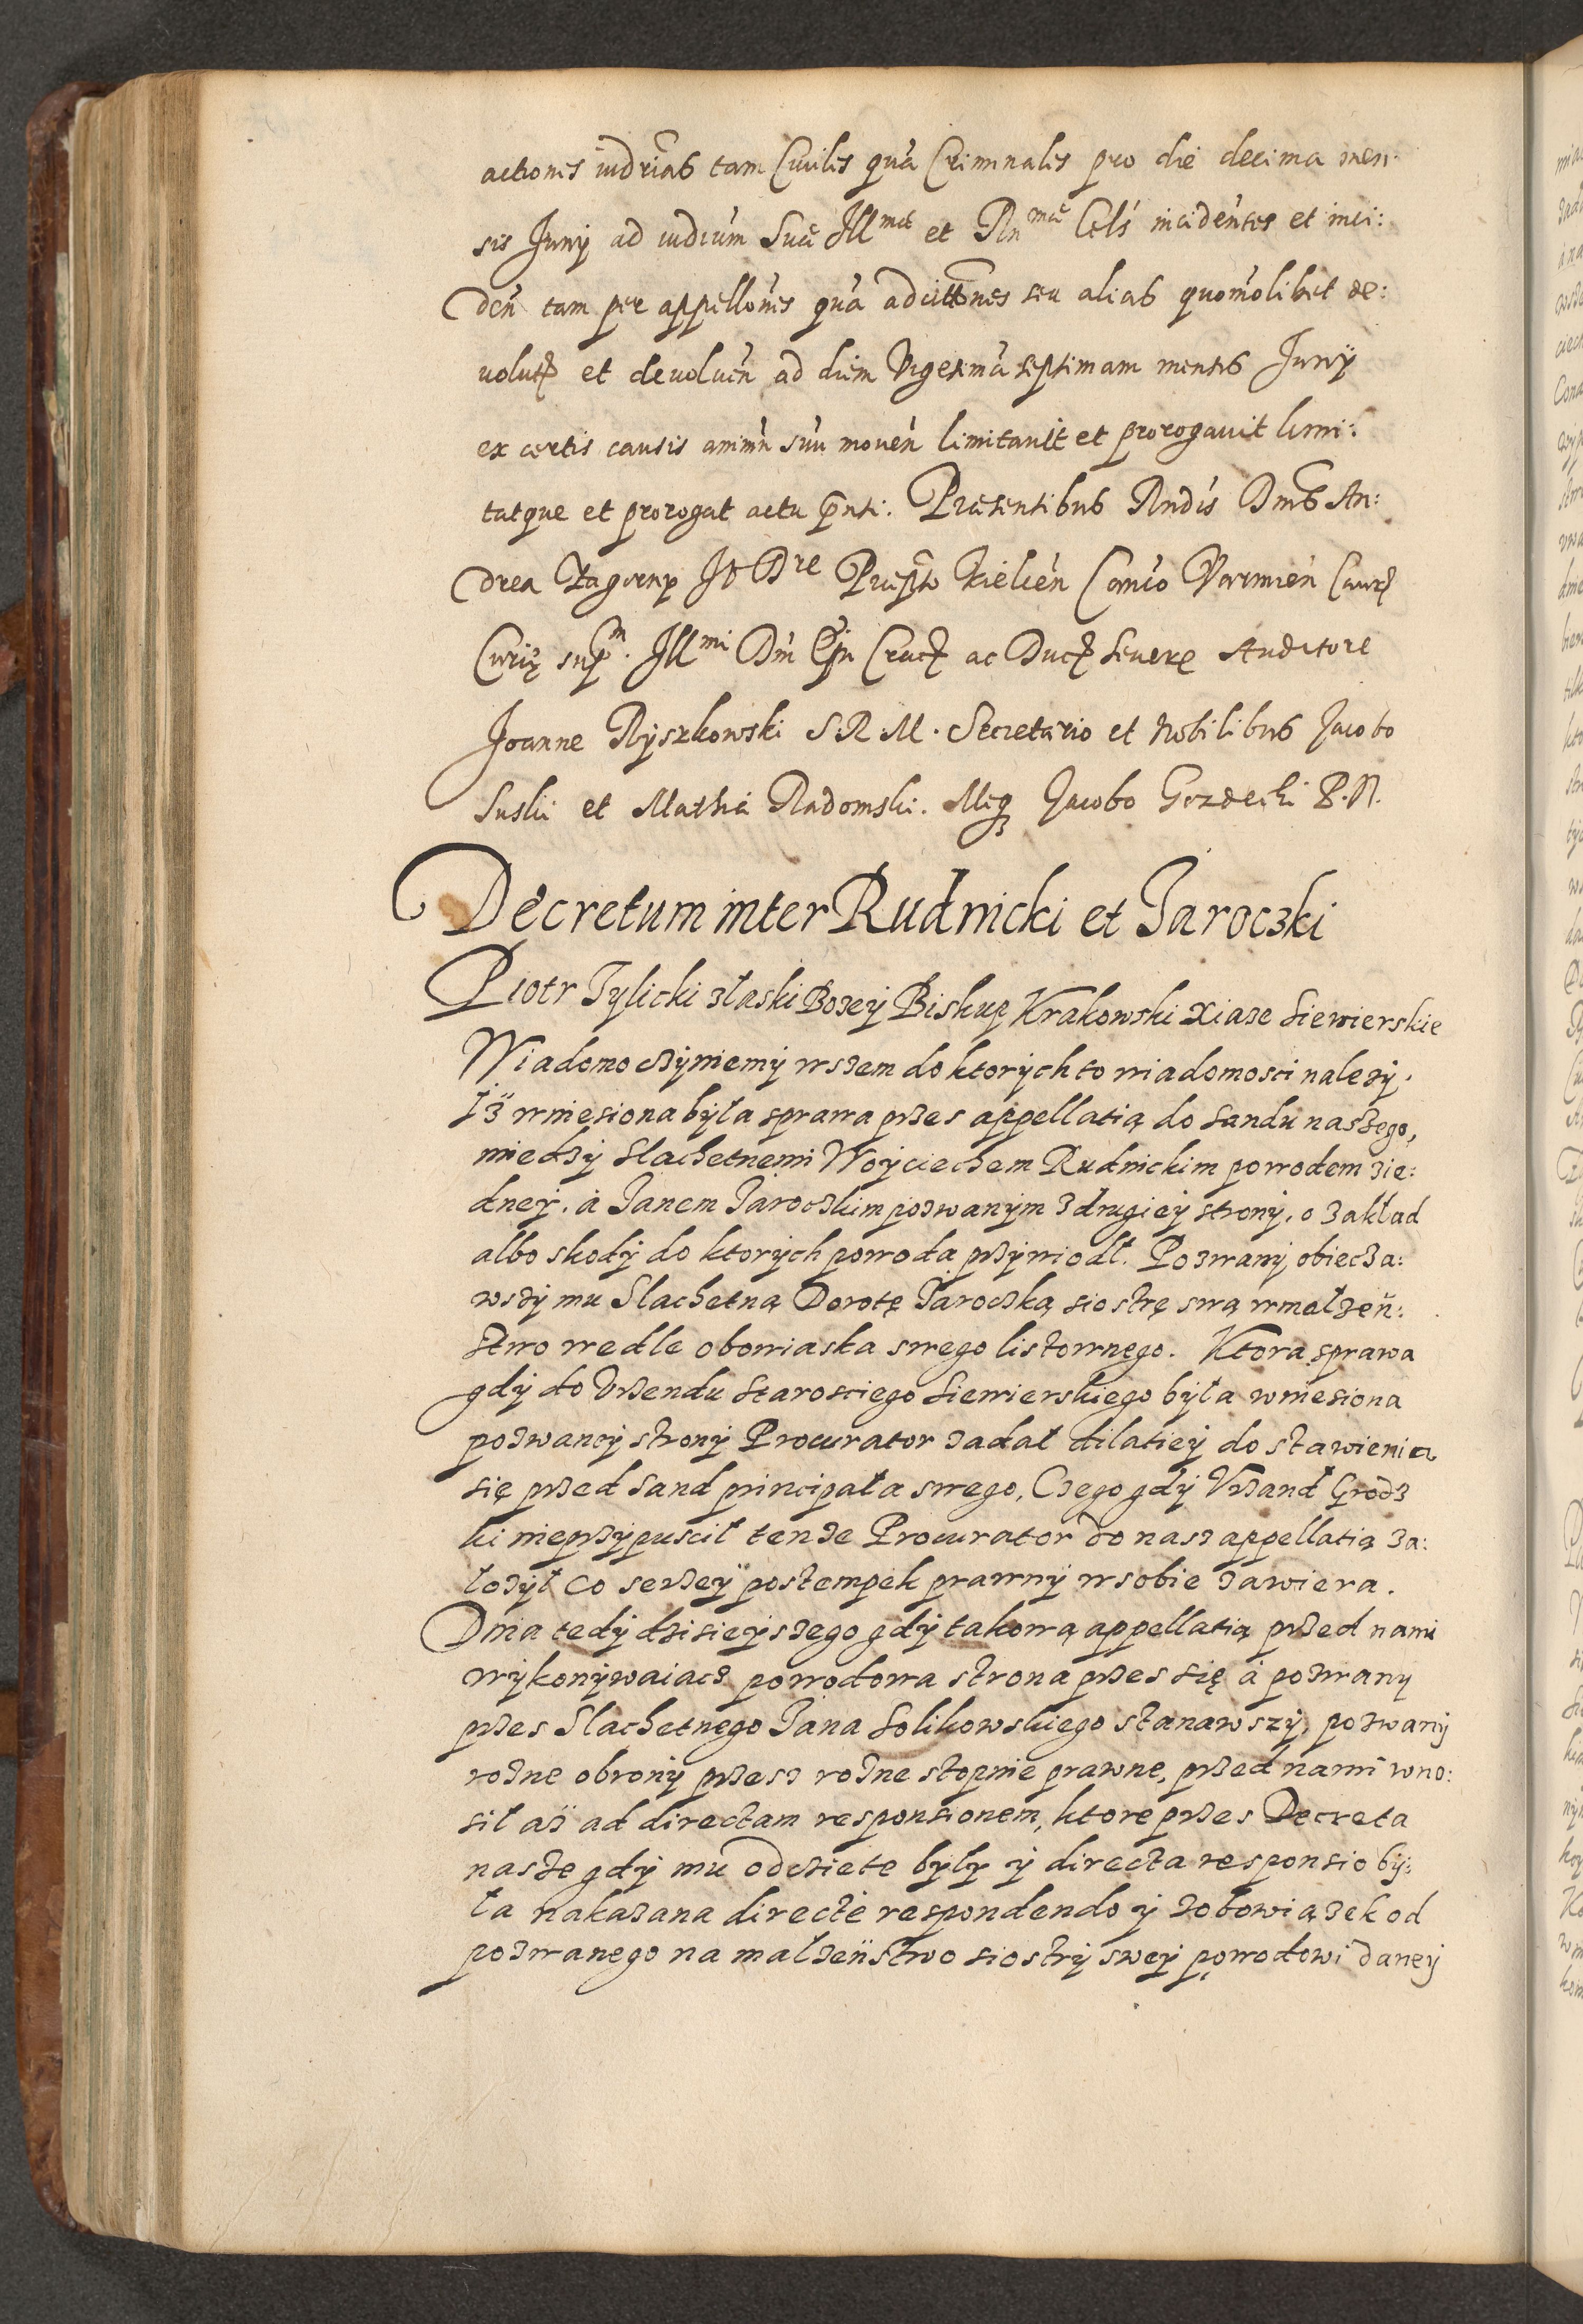 actiones iudrias tam Ciuiles quā Criminales pro die decima men:
sis Juny ad iudium Suæ Illmæ et Rnmæ Cels incidentes et inci:
den tam per appellones quā adcittones seu alias quomolibet de:
uolut et deuoluen ad diem Vigesimā septimam mensis Juny
ex certis causis animū suū mouen limitauit et prorogauit limi:
tatque et prorogat actu pnti. Præsentibus Rndis Dnis An:
drea Præpto Kielcen Canco Varmien
Curię Illmi Dni Epi Crac ac Duc Seuerę Auditore
Joanne Ryszkowski S. R. M. Secretario et Nobilibus Jacobo
Suski et Mathia Radomski. Meq Jacobo Gozdecki P. N.
Decretum inter Rudnicki et Jaroczki
Piotr Tylicki złaski Bozey Biskup Krakowski Xiaze Siewierskie
Wiadomo czyniemy wszem do ktorych to wiadomosci nalezy.
Iz wniesiona była sprawa przes appellatią do Sandu naszego,
miedzy Slachetnemi Woyciechem Rudnickim powodem zie:
dney, a Janem Jaroczkim pozwanym z drugiey strony, o zakład
albo skody do ktorych powoda przywiodł. Pozwany obiecza:
wszy mu Slachetną Dorotę Jaroczką siostrę swą w małzeń:
stwo wedle obowiaska swego listownego. Ktora sprawa
gdy do Vrzendu Starosciego Siewierskiego była wniesiona
pozwaney strony Procurator zadał dilatiey do stawienia
się przed Sand principała swego, Czego gdy Vrzand Grodz
ki nieprzypuscił tenze Procurator do nasz appellatią za:
łozył co serzey postempek prawny w sobie zawiera.
Dnia tedy dzisieyszego gdy takową appellatią przed nami
wykonywaiacz powodowa strona przes się a pozwany
przes Slachetnego Jana Solikowskiego stanawszy, pozwany
rozne obrony przesz rozne stopnie prawne, przed nami wno:
sił az ad directam responsionem, ktore przes Decreta
nasze gdy mu odcziete były y directa responsio by:
ła nakazana directe respondendo y zobowiązek od
pozwanego na małzeństwo siostry swey powodowi daney